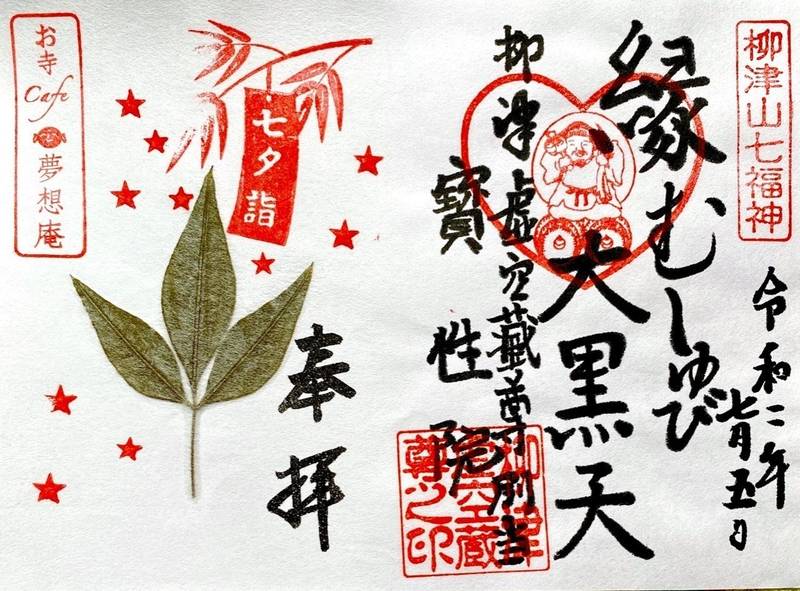 柳津山七福神
令和二年
七月五日
縁むすび
大黒天
柳津虚空蔵尊別当
寳性院
柳津
虚空蔵
尊之印
奉拝
七夕詣
お寺
Cafe
夢想庵